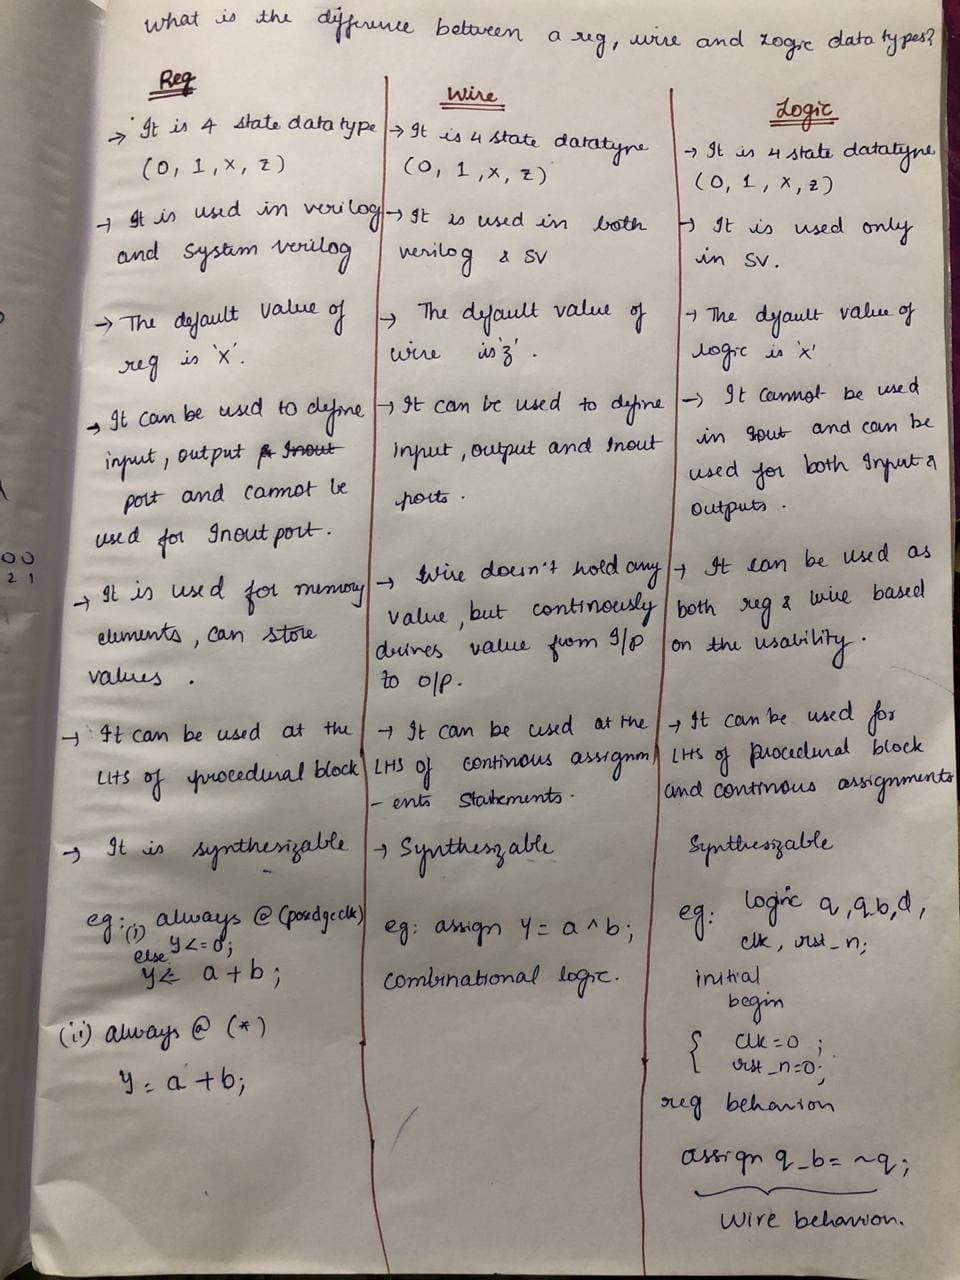 What is the difference between a reg, wire and Logic data types?
Reg
→ It is 4 state data type
(0, 1, x, z)
→ It is used in verilog
and System verilog
→ The default value of
reg is 'x'.
→ It can be used to define
input, output & Inout
port and cannot be
used for Inout port.
→ It is used for memory
elements, can store
values.
→ It can be used at the
LHS of procedural block
→ It is synthesizable
eg: (i) always @ (posedge clk)
y <= 0;
else
y <= a + b;
(ii) always @ (*)
y = a + b;
Wire
→ It is 4 state datatype
(0, 1, x, z)
→ It is used in both
verilog & SV
→ The default value of
wire is 'z'.
→ It can be used to define
input, output and Inout
ports.
→ Wire doesn't hold any
value, but continously
drives value from I/p
to O/P.
→ It can be used at the
LHS of continous assignm
- ents Statements.
→ Synthesizable
eg: assign y = a ^ b;
combinational logic.
Logic
→ It is 4 state datatype
(0, 1, x, z)
→ It is used only
in SV.
→ The default value of
logic is 'x'
→ It cannot be used
in and can be
used for both Input &
outputs.
→ It can be used as
both reg & wire based
on the usability.
→ It can be used for
LHS of procedural block
and continous assignments
Synthesizable
eg: logic q, q_b, d,
clk, rst_n;
initial
begin
{ clk = 0 ;
rst_n = 0;
reg behavior
assign q_b = ~q;
wire behavior.
00
21